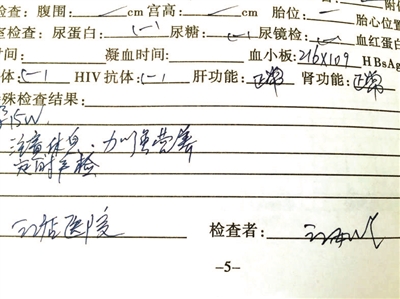 检查：腹围： cm 宫高： cm 胎位： 附
胎心位置
室检查：尿蛋白：(-) 尿糖：(-) 尿镜检：(-) 血红蛋白
时间： 凝血时间： 血小板：216×109 HBsAg
体：(-) HIV抗体：(-) 肝功能：正常 肾功能：正常
殊检查结果：
15W
注意休息．加强营养
定时产检
医院 检查者：
–5–